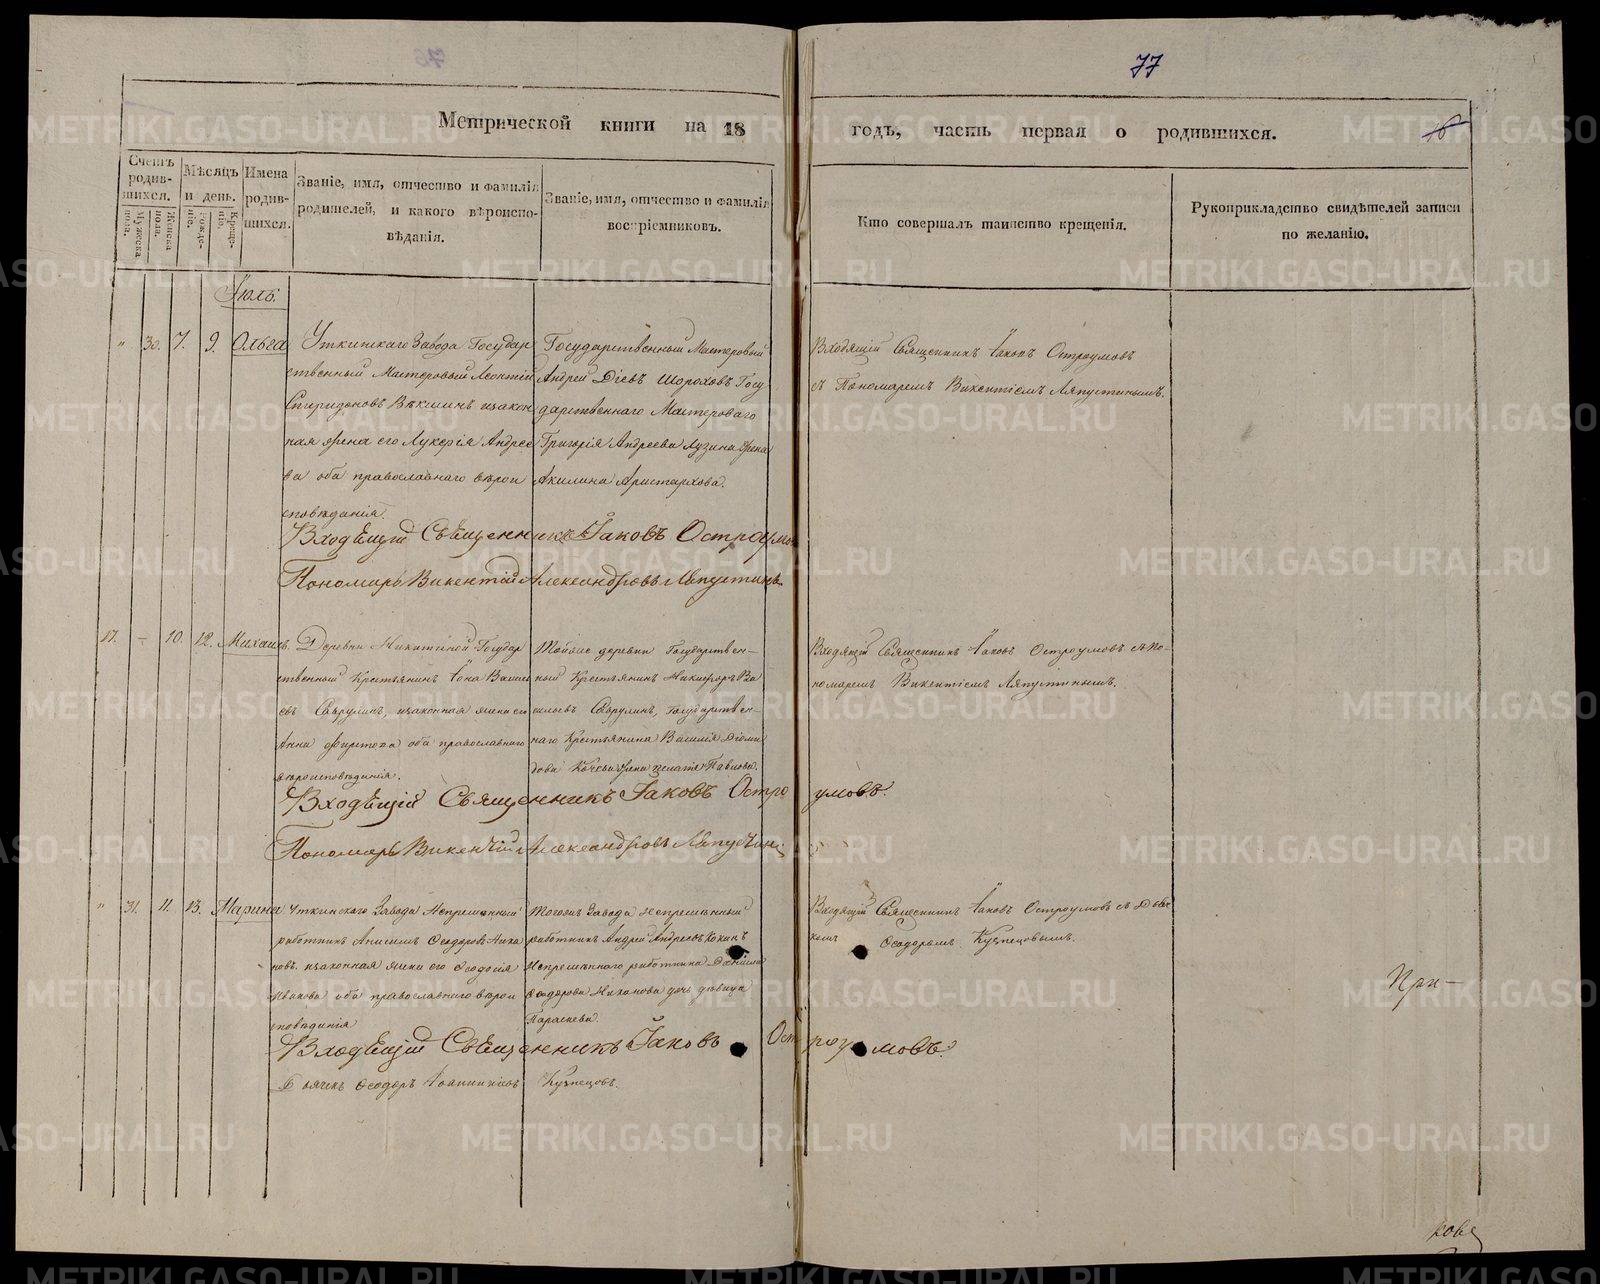 77
Метрической книги на 18 годъ, часть первая о родившихся.
16
Счетъ родив-
шихся.
Мужеска пола.
Женска пола.
Мѣсяцъ и день.
Рожде-
нія.
Креще-
нія.
Имена родив-
шихся.
Званіе, имя, отчество и фамилія
родителей, и какого вѣроиспо-
вѣданія.
Званіе, имя, отчество и фамилія
воспріемниковъ.
Кто совершалъ таинство крещенія.
Рукоприкладство свидѣтелей записи
по желанію.
Іюль.
" 30. 7. 9. Ольга
Уткинскаго Завода Государ
ственный Мастеровый Леонтій
Спиридоновъ Вѣкшинъ изакон
ная жена его Лукерія Андрее
ва оба православнаго вѣрои
сповѣданія.
Государственный Мастеровый
Андрей Діевъ Шороховъ Госу
дарственнаго Мастероваго
Григорія Андреева Лузина жена
Акилина Аристархова.
Входящій Священникъ Іаковъ Остроумовъ
съ Пономаремъ Викентіемъ Ляпустинымъ.
Входящій Священникъ Іаковъ Остроумо
Пономарь Викентій Александровъ Ляпустинъ.
17. – 10. 12. Михаилъ.
Деревни Никитиной Государ
ственный Крестьянинъ Іона Васил
евъ Саврулинъ, изаконная жена его
Анна оба православнаго
вѣроисповѣданія.
Тойже деревни Государствен-
ный Крестьянинъ Никифоръ Ва
сильевъ Саврулинъ, Государствен-
наго Крестьянина Василія
жена Павлова.
Входящій Священникъ Іаковъ Остроумовъ съ По-
номаремъ Викентіемъ Ляпустинымъ.
Входящій Священникъ Іаковъ Остро умовъ.
Пономарь Викентій Александровъ Ляпустин
" 31. 11. 13. Марина
Уткинского Завода Непременный
работникъ Анисимъ Феодоровъ Ника
новъ изаконная жена его Феодосія
Иванова оба православнаго вѣрои
сповѣданія
Тогожъ Завода Непремѣнный
работникъ Андрей Андреевъ Кокинъ
Непремѣннаго работника Даніила
Феодорова Никанова дочь девица
Параскева.
Входящій Священникъ Іаковъ Остроумовъ съ Дьяч
комъ Феодоромъ Кузнецовымъ.
Входящій Священникъ Іаковъ Ост роу мовъ.
Дьячекъ Феодоръ Іоанникіевъ Кузнецовъ.
При-
кове
METRIKI.GASO-URAL.RU